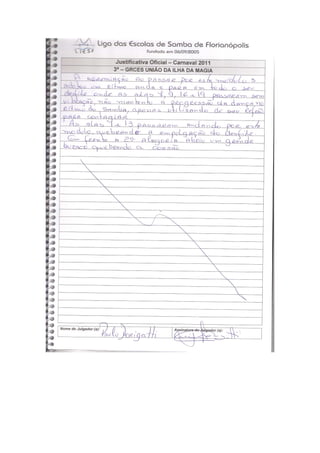 Liga das Escolas de Samba de Florianópolis
Fundada em 08/09/2005
Justificativa Oficial – Carnaval 2011
3ª – GRCES UNIÃO DA ILHA DA MAGIA
A agremiação ao passar por este módulo 3
adotou um ritmo anda e para em todo o seu
desfile onde as alas 7, 9, 16 e 19 passaram sem
vibração, não mantento a progressão da dança,
ritmo do samba, apenas utilizando do seu refrão
para contagiar.
As alas 1 e 13 passaram andando por este
módulo, quebrando a empolgação do desfile.
Em frente a 2ª alegoria abriu um grande
buraco quebrando a coesão.
Nome do Julgador (a):
Assinatura do Julgador (a):